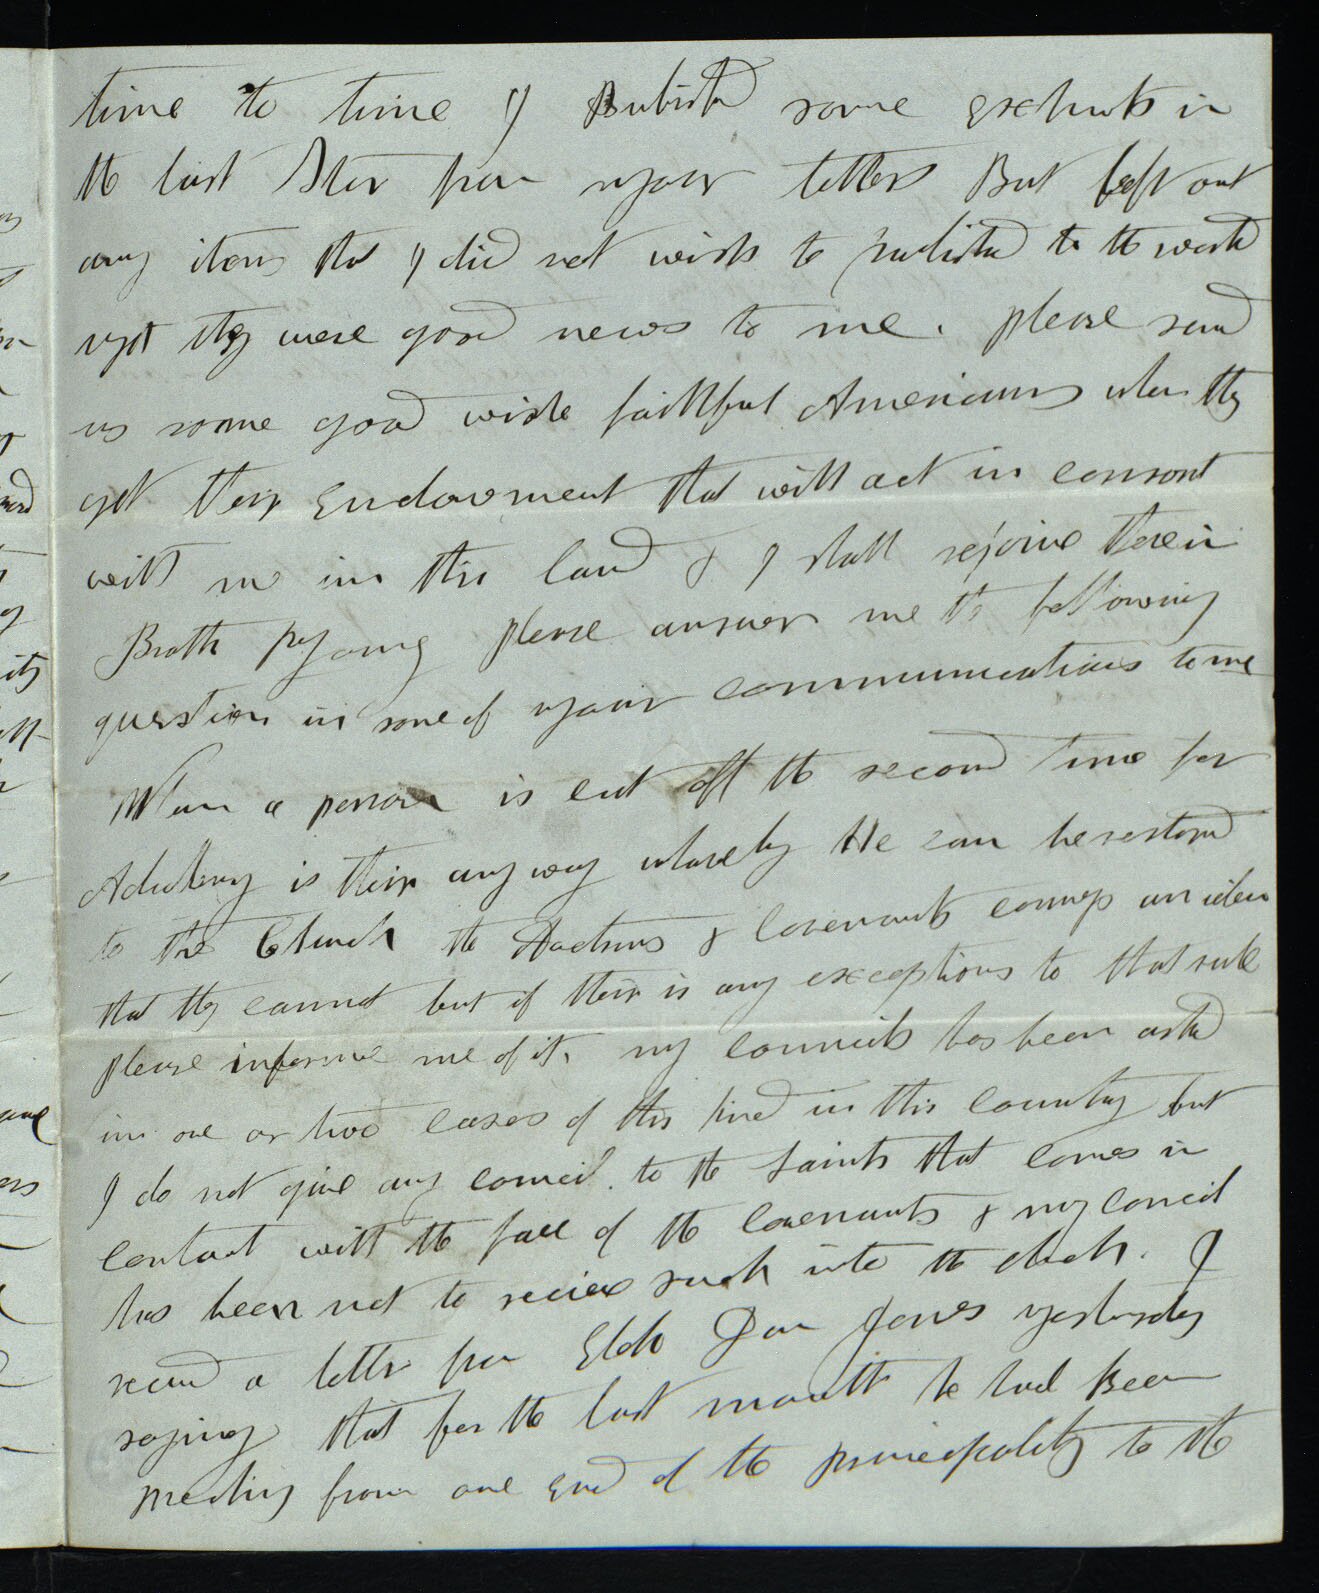 time to time I Publishd some extracts in
the last Star from your letters But left out
any items that I did not wish to publishd to the world
yet they were good news to me. please send
us some good wise faithful Americans when they
get their Endowment that will act in consort
with me in this land & I shall rejoice therein
Broth Young please answer me the following
question in some of your communications to me
When a person is cut off the second time for
Adultery is their any way whareby He can be restored
to the Church the Doctrins & Covenants conveys an idea
that they cannot but if their is any exceptions to that rule
please informe me of it. my councils has been asked
in one or two cases of this kind in this Country but
I do not give any council to the Saints that comes in
contact with the face of the Covenants & my concil
has been not to recieve such into the church. I
recevd a letter from Elder Dan Jones yesterday
saying that for the last month he had Been
preaching from one End of the principality to the